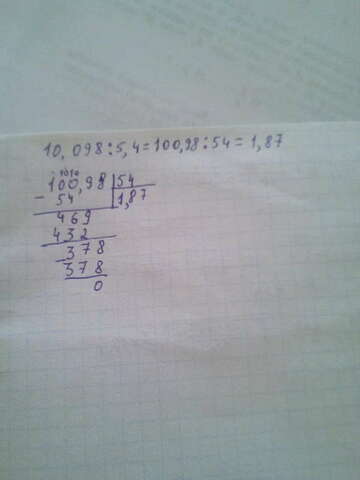 10,098:5,4=100,98:54=1,87
1010
100,98 54
- 54 1,87
469
432
- 378
378
0